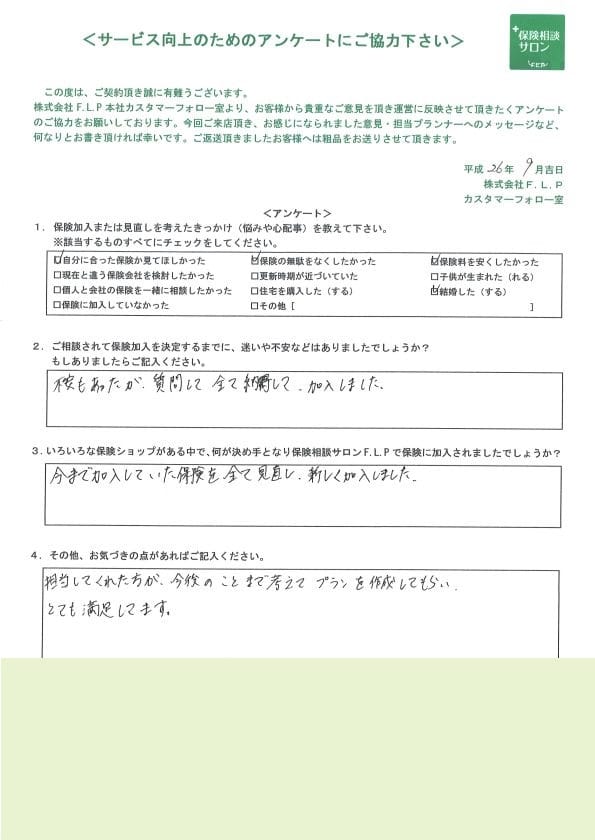 ＜サービス向上のためのアンケートにご協力下さい＞
保険相談
サロン
F.L.P
この度は、ご契約頂き誠に有難うございます。
株式会社F.L.P本社カスタマーフォロー室より、お客様から貴重なご意見を頂き運営に反映させて頂きたくアンケート
のご協力をお願いしております。今回ご来店頂き、お感じになられました意見・担当プランナーへのメッセージなど、
何なりとお書き頂ければ幸いです。ご返送頂きましたお客様へは粗品をお送りさせて頂きます。
平成 26年 9月吉日
株式会社F.L.P
カスタマーフォロー室
＜アンケート＞
1．保険加入または見直しを考えたきっかけ（悩みや心配事）を教えて下さい。
※該当するものすべてにチェックをしてください。
☑自分に合った保険か見てほしかった ☑保険の無駄をなくしたかった ☑保険料を安くしたかった
□現在と違う保険会社を検討したかった □更新時期が近づいていた □子供が生まれた（れる）
□個人と会社の保険を一緒に相談したかった □住宅を購入した（する） ☑結婚した（する）
□保険に加入していなかった □その他［ ］
2．ご相談されて保険加入を決定するまでに、迷いや不安などはありましたでしょうか？
もしありましたらご記入ください。
不安もあったが、質問して 全て納得して、加入しました。
3．いろいろな保険ショップがある中で、何が決め手となり保険相談サロンF.L.Pで保険に加入されましたでしょうか？
今まで加入していた保険を全て見直し、新しく加入しました。
4．その他、お気づきの点があればご記入ください。
担当してくれた方が、今後のことまで考えて プランを作成してもらい、
とても満足してます。